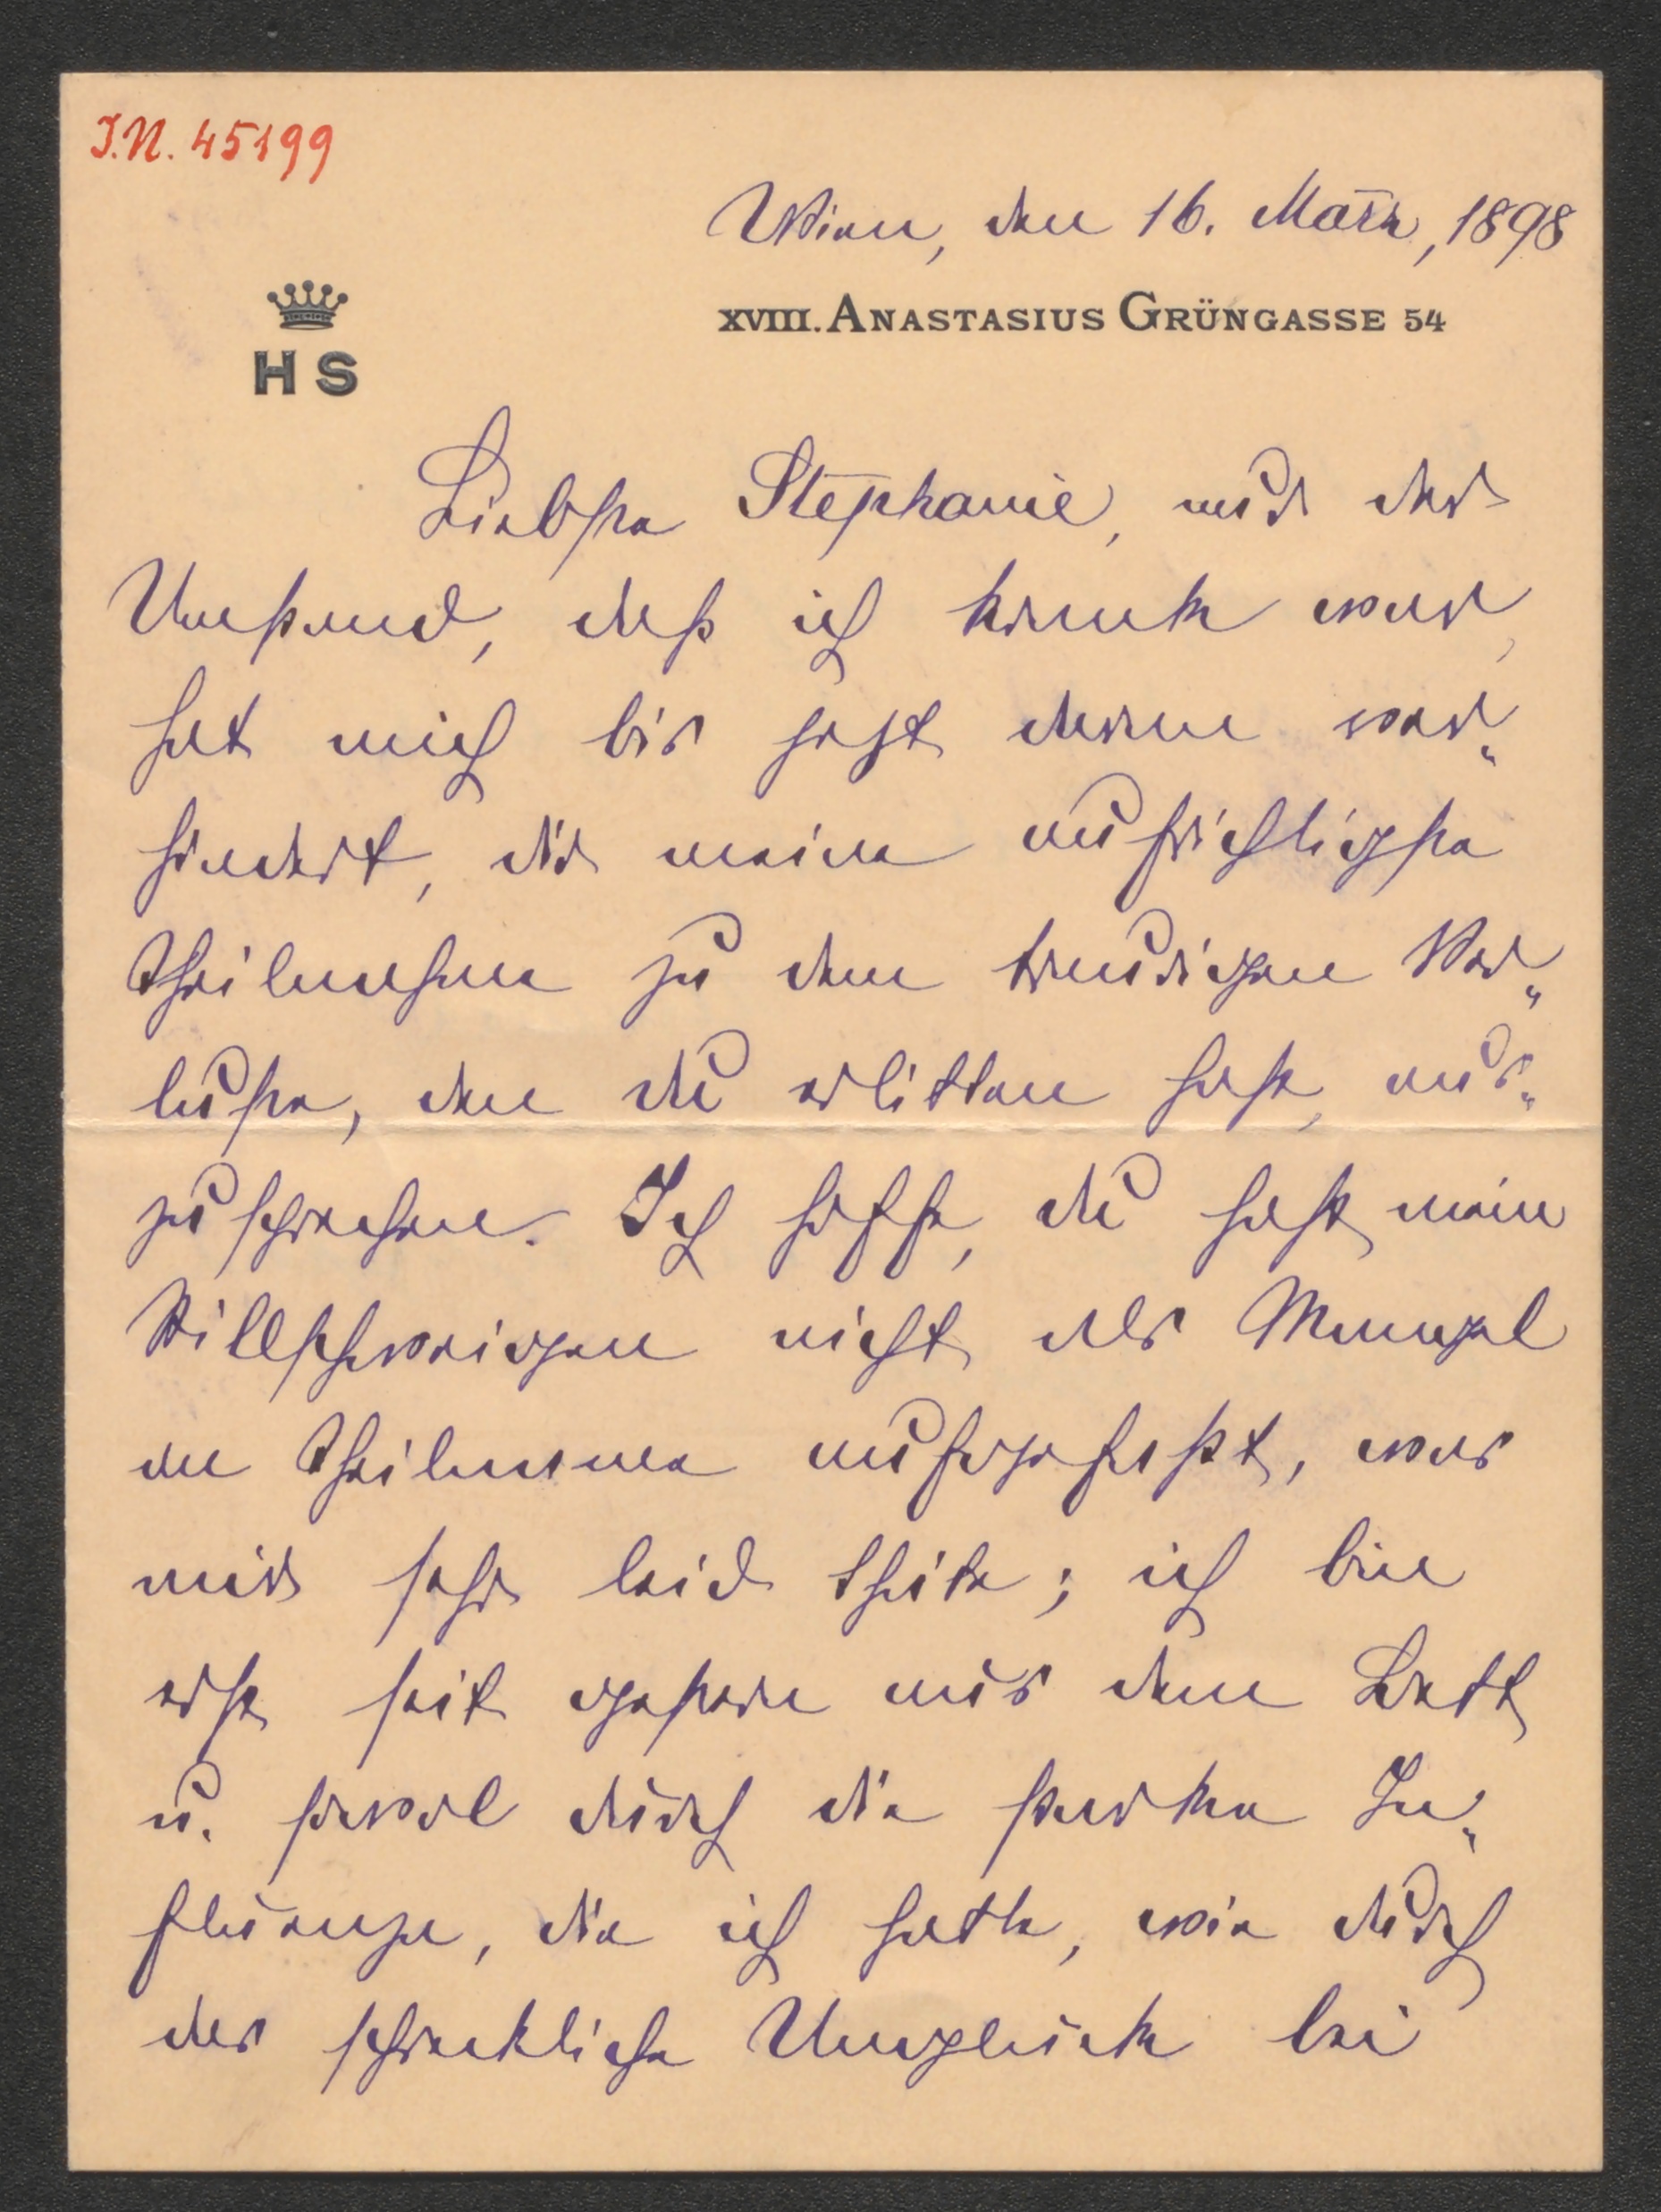 I.N. 45199
Wien, den 16. März, 1898
HS
XVIII. ANASTASIUS GRÜNGASSE 54
Liebste Stephanie, nur der
Umstand, daß ich krank war,
hat mich bis jetzt daran ver„
hindert, dir meine aufrichtigste
Theilnahme zu dem traurigen Ver„
luste, den du erlitten hast, aus„
zusprechen. Ich hoffe, du hast mein
Stillschweigen nicht als Mangel
an Theilname aufgefaßt, was
mir sehr leid thäte; ich bin
erst seit gestern aus dem Bett
u. sowol durch die starke In„
fluenza, die ich hatte, wie durch
das schreckliche Unglück bei